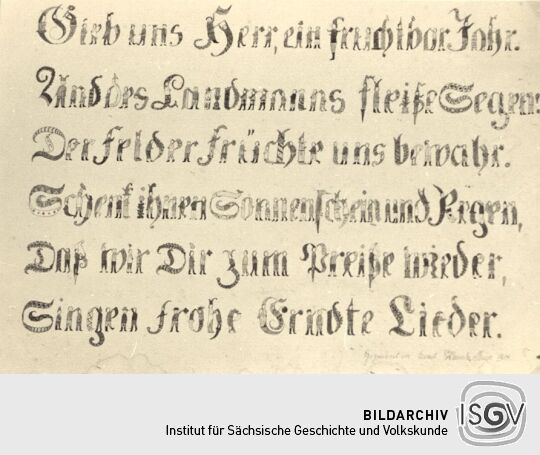 Gieb uns Herr, ein fruchtbar Jahr.
Und des Landmanns fleiße Segen:
Der felder früchte uns bewahr.
Schenk ihnen Sonnenschein und Regen,
Daß wir Dir zum Preiße wieder,
Singen frohe Erndte Lieder.
BILDARCHIV
Institut für Sächsische Geschichte und Volkskunde
ISGV